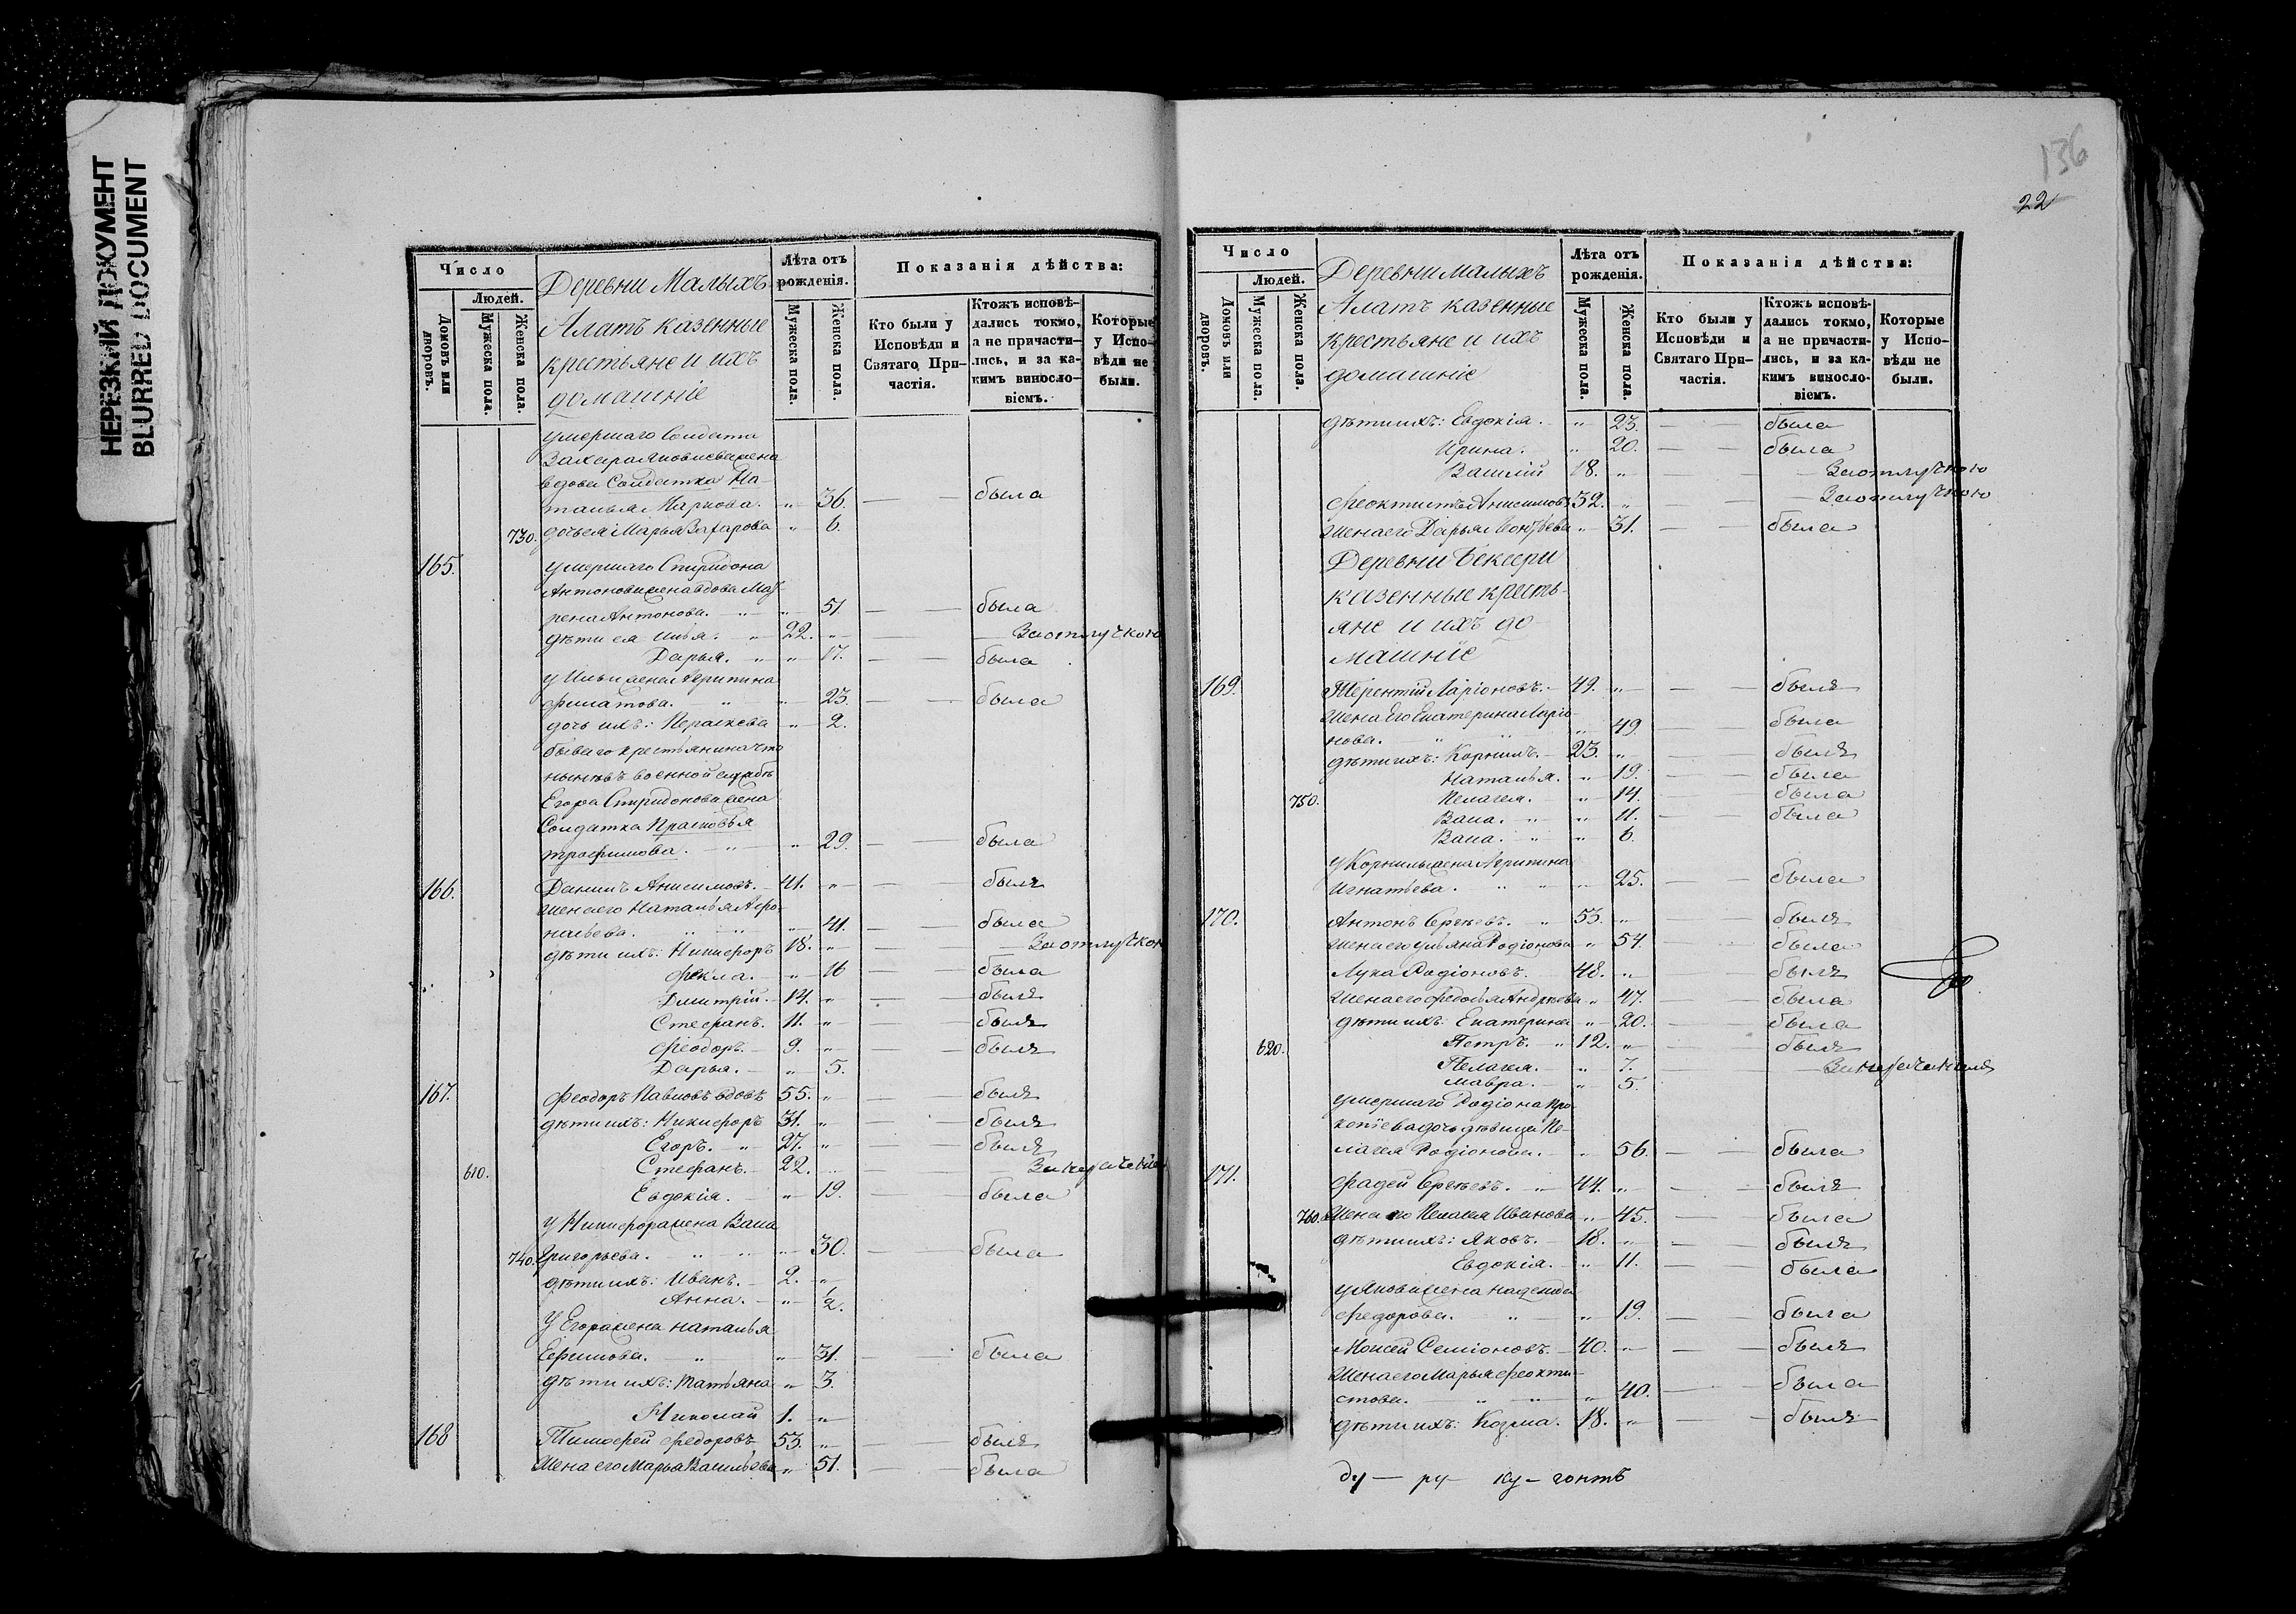 НЕРЕЗКИЙ ДОКУМЕНТ
BLURRED DOCUMENT
Число
Людей.
Домовъ или дворовъ.
Мужеска пола.
Женска пола.
Деревни Малыхъ
Алатъ казенные
крестьяне и ихъ
домашніе
Лѣта отъ рожденія.
Мужеска пола.
Женска пола.
Показанія дѣйства:
Кто были у Исповѣди и Святаго При-частія.
Ктожъ исповѣ-дались токмо, а не причасти-лись, и за ка-кимъ винosло-віемъ.
Которые у Испо-вѣди не были.
умершаго Солдата
Захара Яковлева жена
вдова Солдатка На-
талья Маркова. " 36. — — была
730. дочь ея Марья Захарова " 6.
165. умершаго Спиридона
Антонова жена вдова Мат-
рена Антонова. " " 51 — — была
дѣти ея Илья. " 22. " — — За отлучкою
Дарья. " " 17. — — была
у Ильи жена Агрипина
Филатова. " " 23. — — была
дочь ихъ: Параскева " 2.
бываго крестьянина что
нынѣ въ военной службѣ
Егора Спиридонова жена
Солдатка Прасковья
Трофимова. " " 29. — — была
166. Данилъ Анисимовъ. 41. " — — былъ
жена его Наталья Афо-
насьева. " " " 41. — — была
дѣти ихъ: Никифоръ 18. " — — За отлучкою
Фекла. " 16 — — была
Дмитрій. 14. " — — былъ
Стефанъ. 11. " — — былъ
Феодоръ. 9. " — — былъ
Дарья. " 5.
167. Феодоръ Павловъ вдовъ 55. " — — былъ
дѣти ихъ: Никифоръ 31. " — — былъ
Егоръ. " 27. " — — былъ
610. Стефанъ. 22. " — — За нерачен
Евдокія. " 19. — — была
у Никифора жена Васса
740. Григорьева. " " " 30. — — была
дѣти ихъ: Иванъ. 2. "
Анна. " ½.
У Егора жена Наталья
Ефимова. " " 31. — — была
дѣти ихъ: Татьяна " 3.
Николай 1. "
168 Тимофей Федоровъ 53. " — — былъ
Жена его Марья Васильева " 51. — — была
136
22
Число
Людей.
Домовъ или дворовъ.
Мужеска пола.
Женска пола.
Деревни малыхъ
Алатъ казенные
крестьяне и ихъ
домашніе
Лѣта отъ рожденія.
Мужеска пола.
Женска пола.
Показанія дѣйства:
Кто были у Исповѣди и Святаго При-частія.
Ктожъ исповѣ-дались токмо, а не причасти-лись, и за ка-кимъ винosло-віемъ.
Которые у Испо-вѣди не были.
дѣти ихъ: Евдокія. " 23. — — была
Ирина. " 20. — — была
Василій 18. " — — За отлучкою
Феоктистъ Анисимовъ 32. " — — За отлучкою
Жена его Дарья Леонтьева " 31. — — была
Деревни Бексери
казенные кресть-
яне и их до-
машніе
169. Терентій Ларіоновъ. 49. " — — былъ
Жена Его Екатерина Ларіо-
нова. " " " 49. — — была
дѣти ихъ: Корнилъ. 23. " — — былъ
Наталья. " 19. — — была
750. Пелагея. " 14. — — была
Васа. " " 11. — — была
Васа. " " 6.
у Корнилы жена Агрипина
Игнатьева. " " " 25. — — была
170. Антонъ Сергѣевъ. " 53. " — — былъ
Жена его Ульяна Родіонова " 54. — — была
Лука Родіоновъ. 48. " — — былъ
Жена его Федосья Андрѣева " 47. — — была
дѣти ихъ: Екатерина " 20. — — была
620. Петръ. " 12. " — — былъ
Пелагея. " 7. — — За нераченіемъ
Мавра. " 5.
умершаго Родіона Про-
копіева дочь дѣвица Пе-
лагея Родіонова. " 56. — — была
171. Фадей Сергѣевъ. " 44. " — — былъ
760. Жена его Пелагея Иванова " 45. — — была
дѣти ихъ: Яковъ. 18. " — — былъ
Евдокія. " 11. — — была
у Якова жена Надежда
Федорова. " " 19. — — была
Моисей Семіоновъ. 40. " — — былъ
Жена его Марья Феокти-
стова. " " " 40. — — была
дѣти ихъ: Козма. 18. " — — былъ